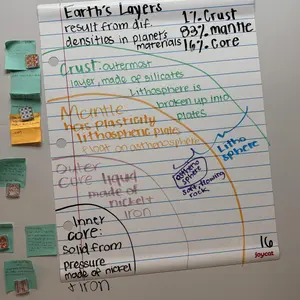 Earth's Layers
result from dif.
densities in planet's
materials
1% Crust
83% mantle
16% Core
Crust: outermost
layer, made of silicates
Lithosphere is
broken up into
plates
Mantle
has plasticity
lithospheric plate
float on asthenosphere
Litho
sphere
astheno
sphere
soft, flowing
rock
Outer
Core liquid
made of
nickel +
iron
Inner
Core:
solid from
pressure
made of nickel
+ iron
16